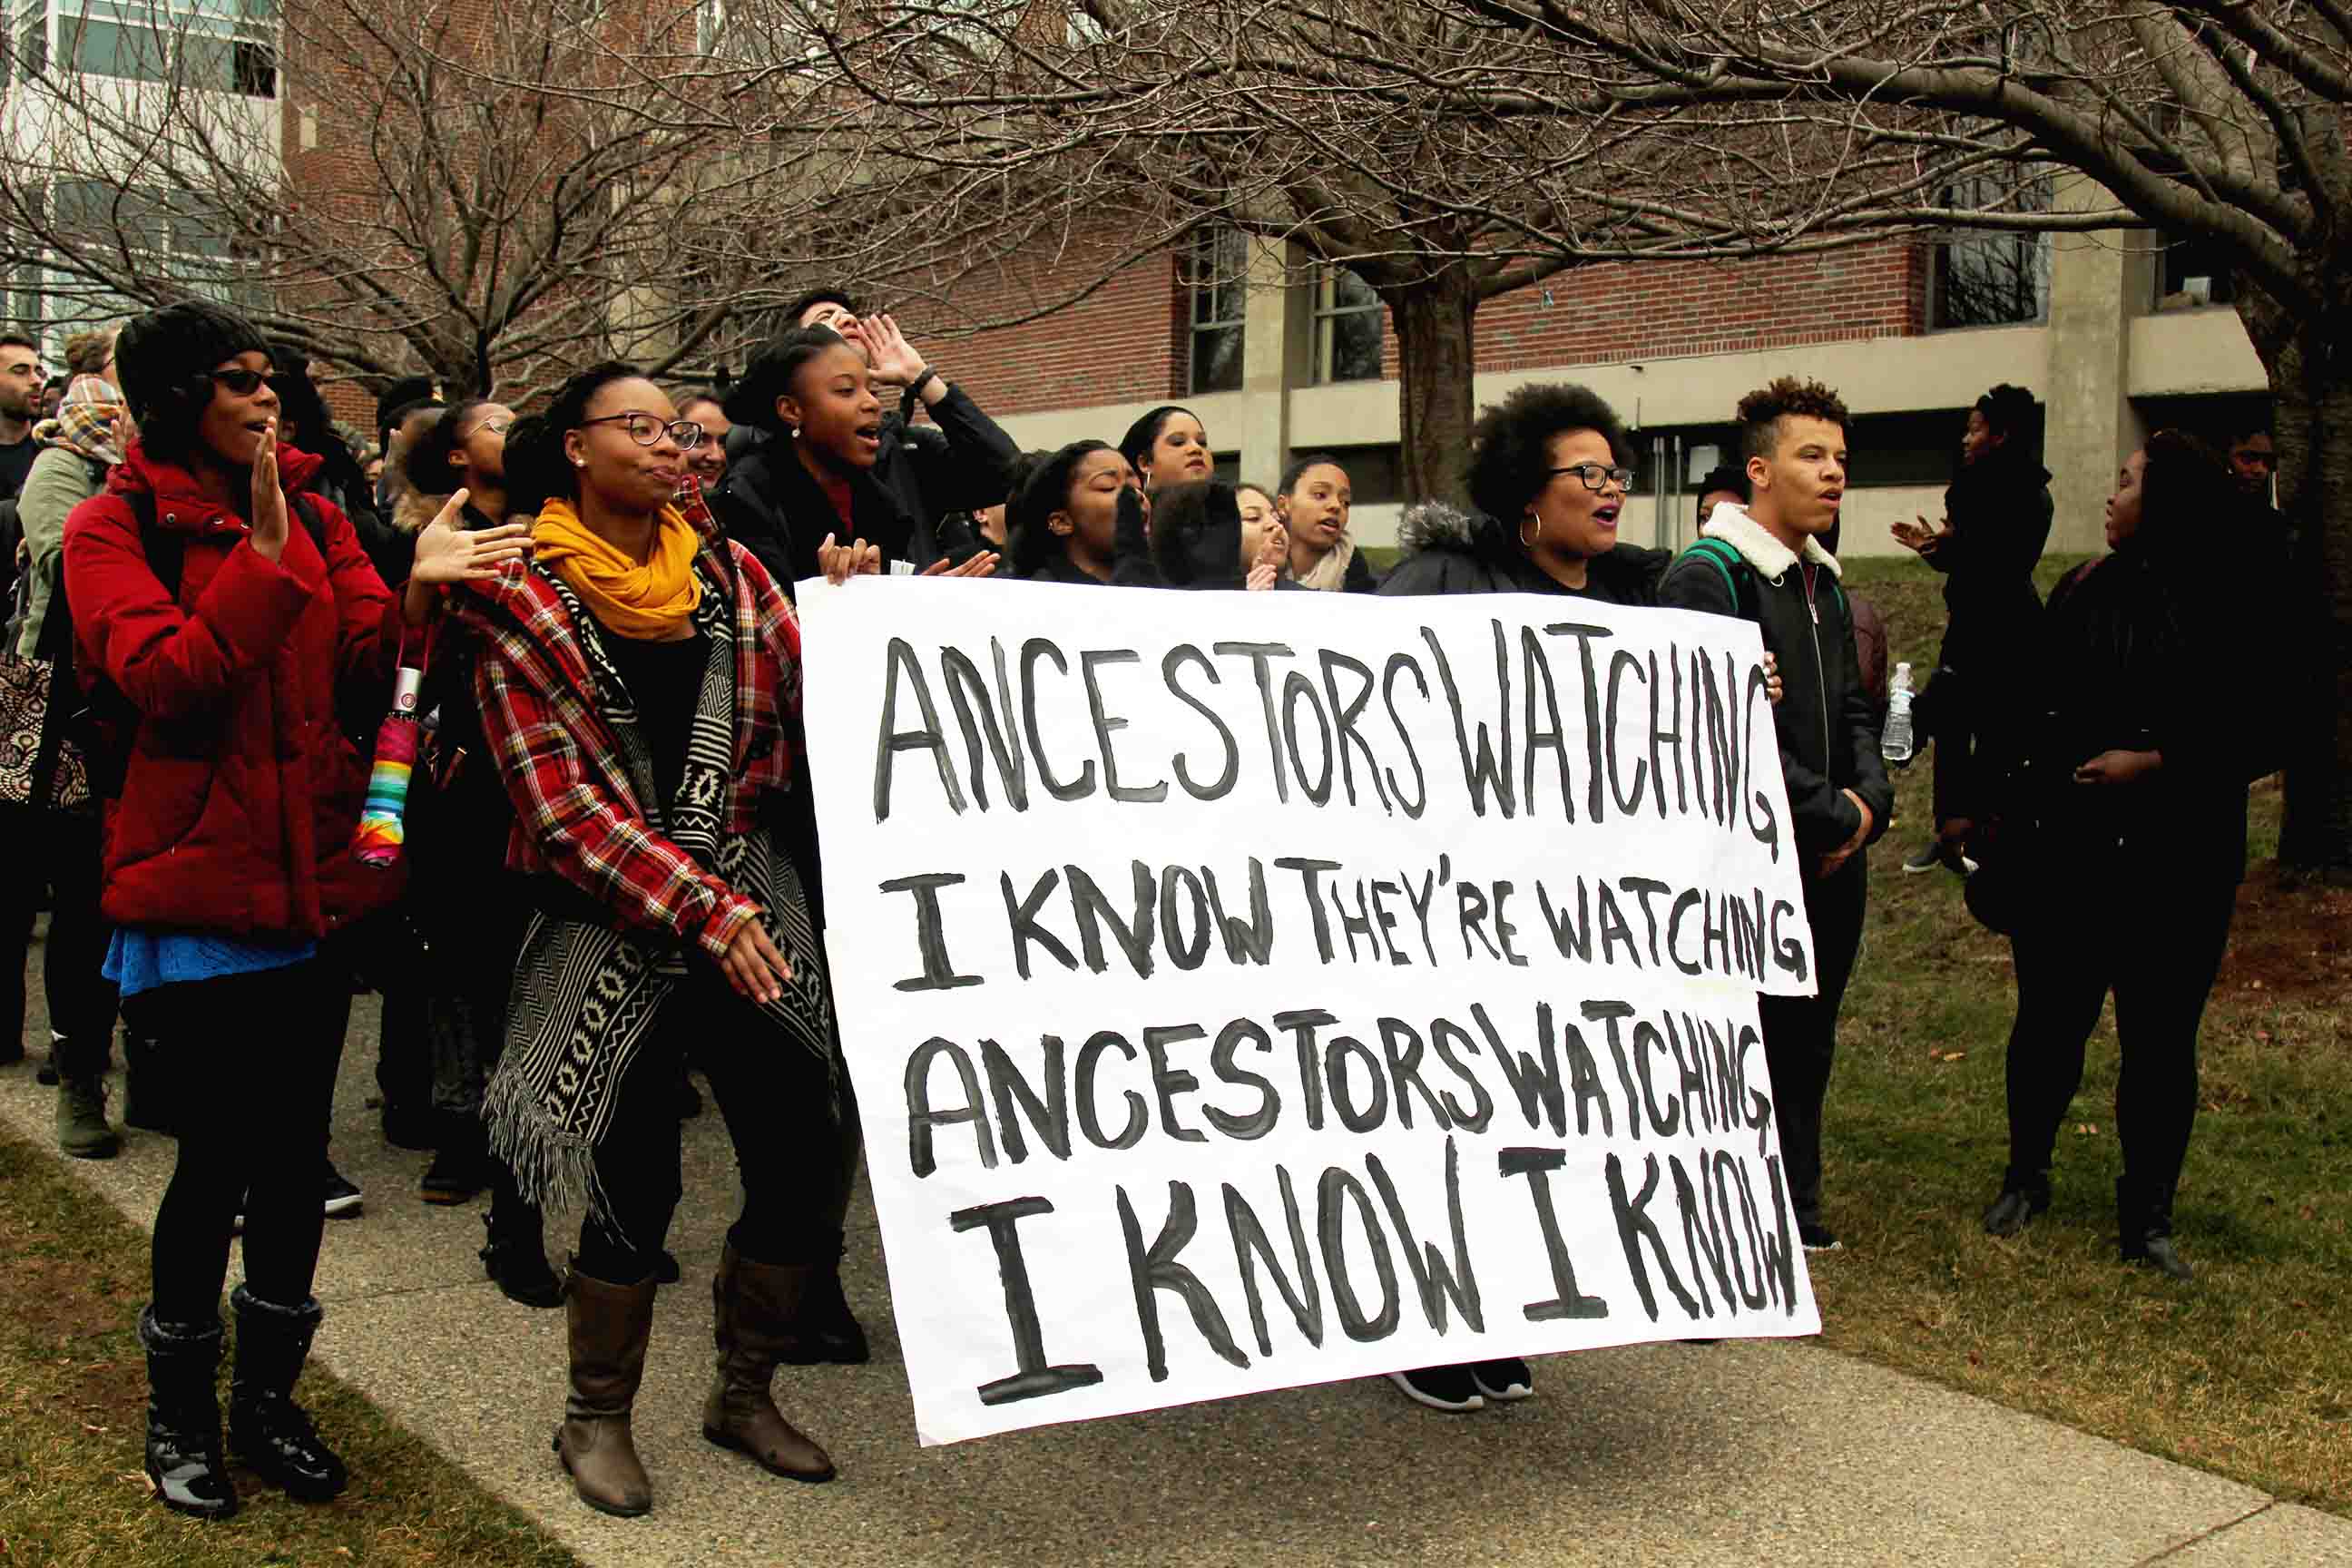 ANCESTORS WATCHING
I KNOW THEY'RE WATCHING
ANCESTORS WATCHING
I KNOW I KNOW